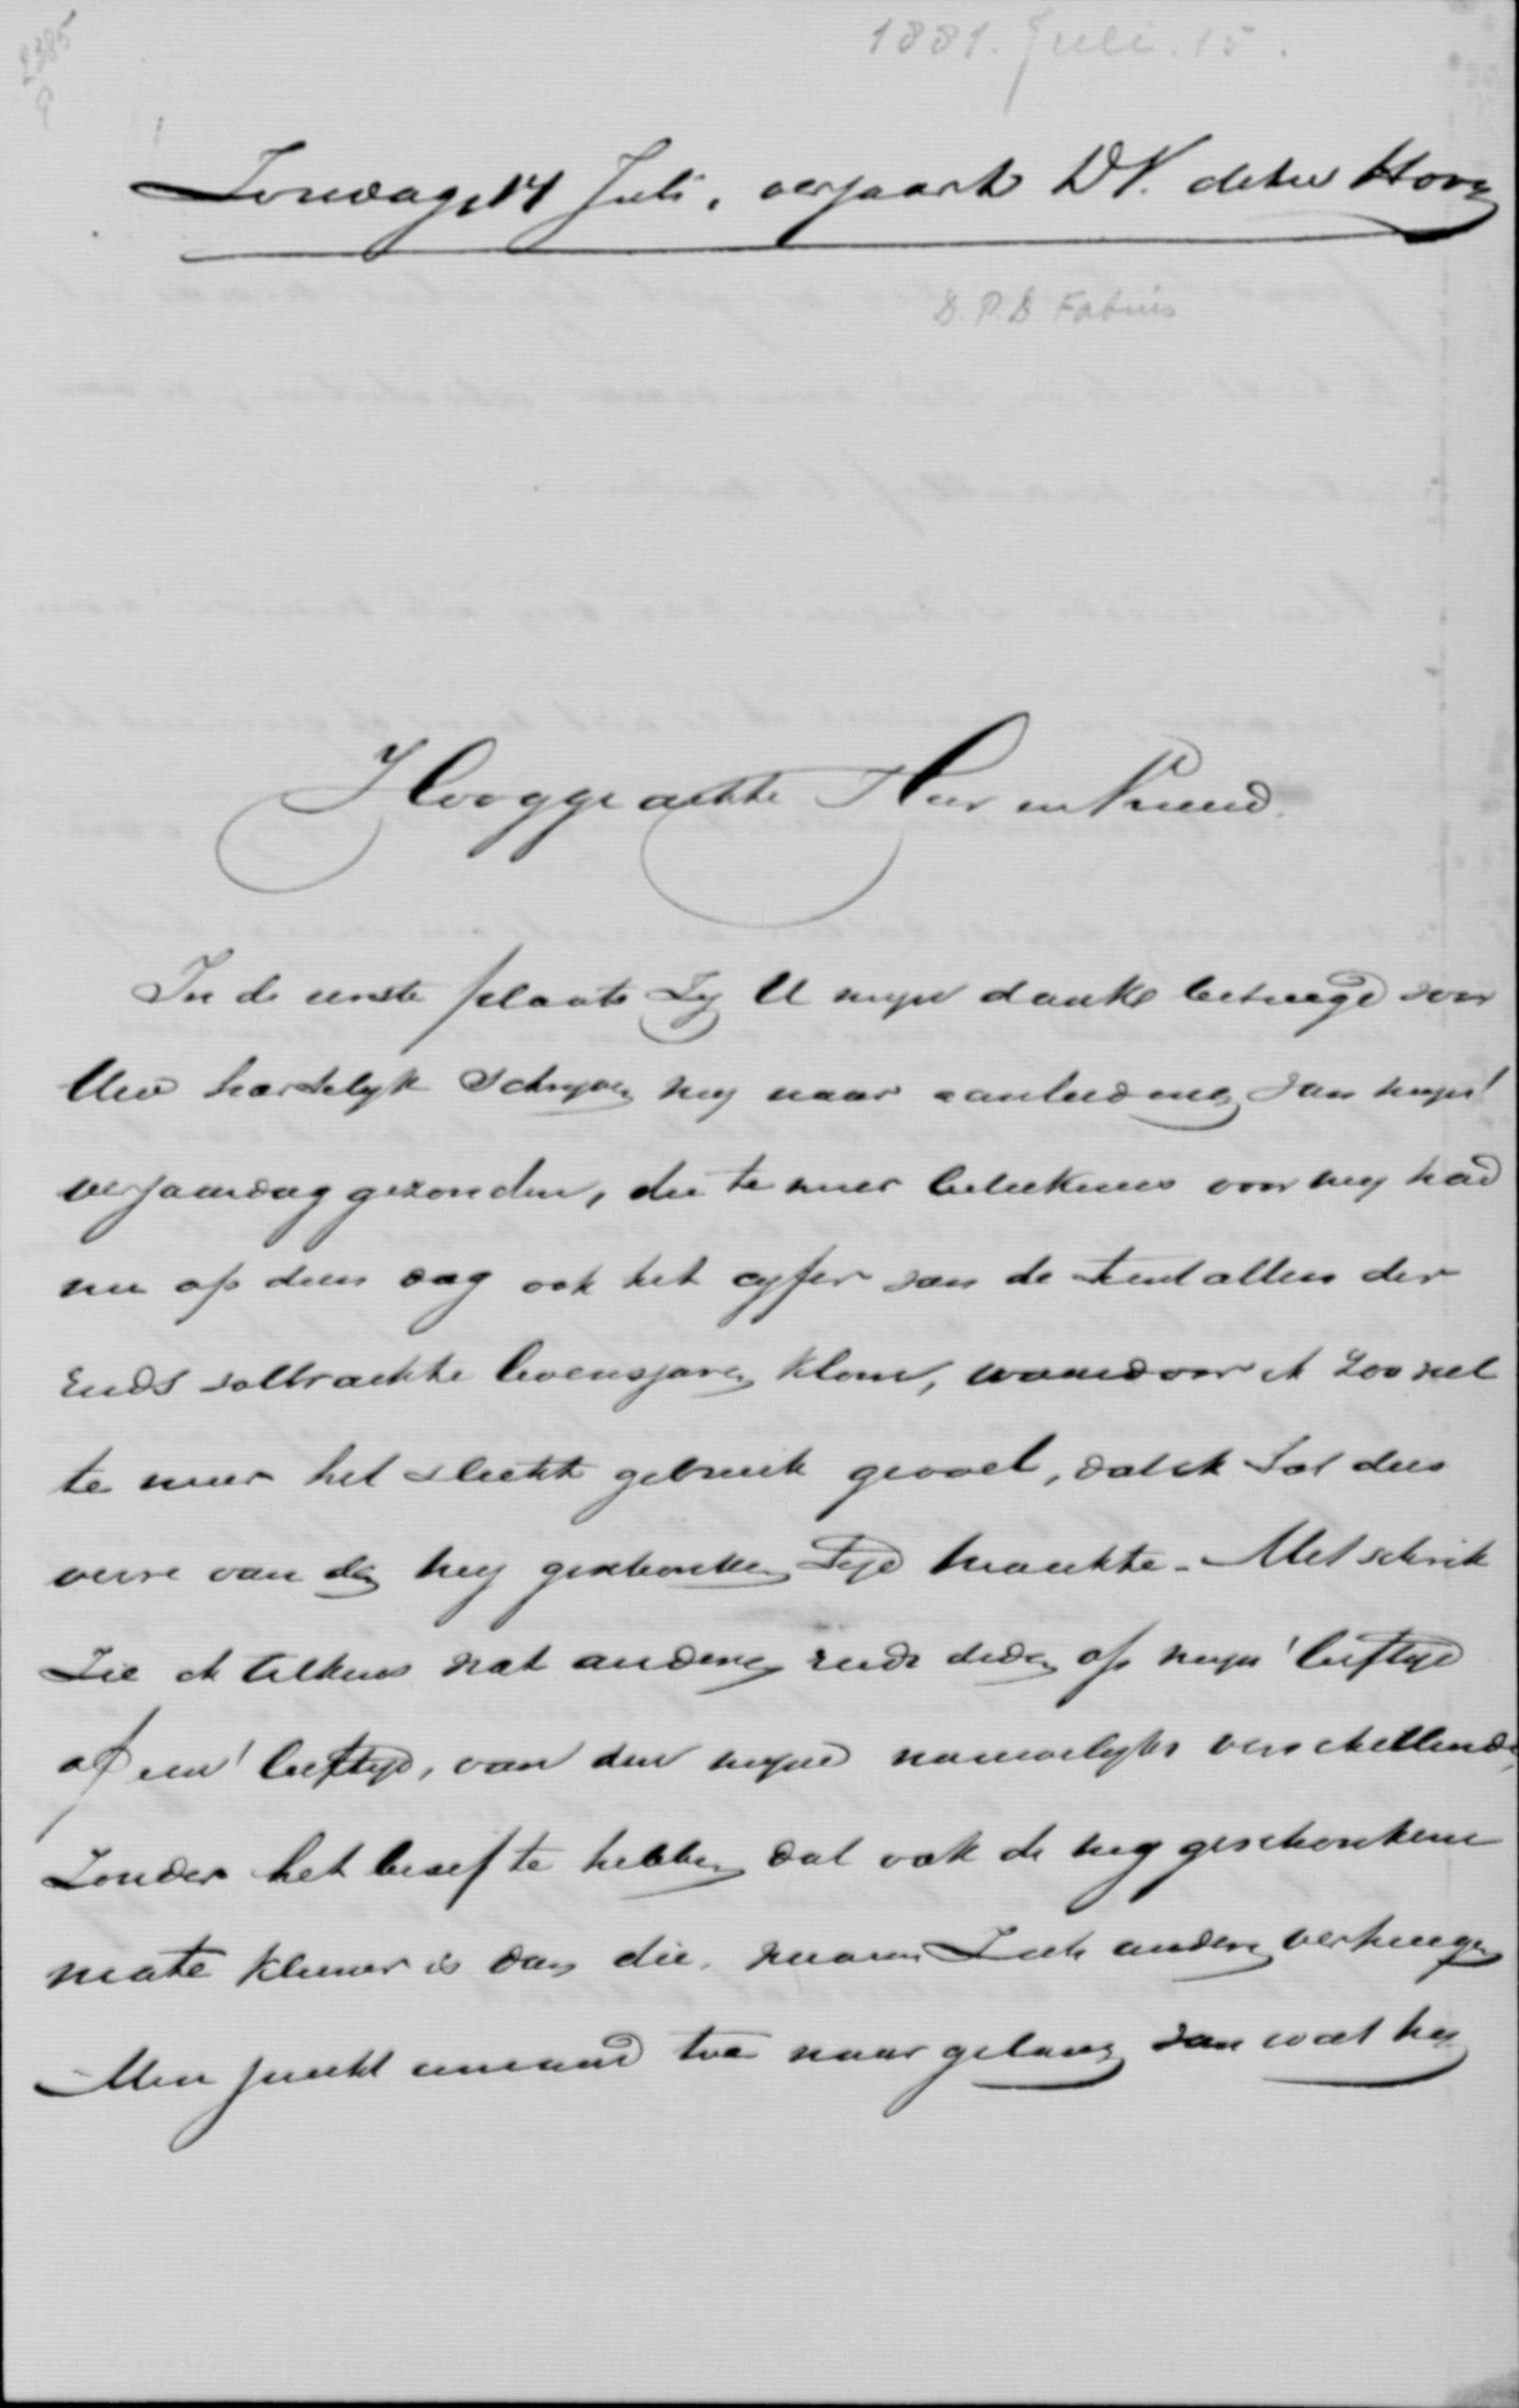 2385
1881. Juli. 15.
Zondag, 17 Juli, verjaart D.V. de Hoog
D.P.D. Fabius
Hooggeachte Heer en Vriend.
In de eerste plaats zij U mijn dank betuigd voor
Uw hartelijk schrijven mij naar aanleiding van mijn
verjaardag gezonden, die te meer beteekenis voor mij had
nu op dien dag ook het cijfer van de tientallen der
reeds volbrachte levensjaren klom, waardoor ik zoo veel
te meer het slecht gebruik gevoel, dat ik tot dus
verre van den mij geschonken tijd maakte. Met schrik
zie ik telkens wat anderen reeds deden op mijn leeftijd
of een leeftijd, van den mijne nauwelijks verschillende,
zonder het besef te hebben dat ook de mij geschonkene
mate kleiner is dan die, waarin zich anderen verheugen
Men juicht iemand toe naar gelang van wat hij